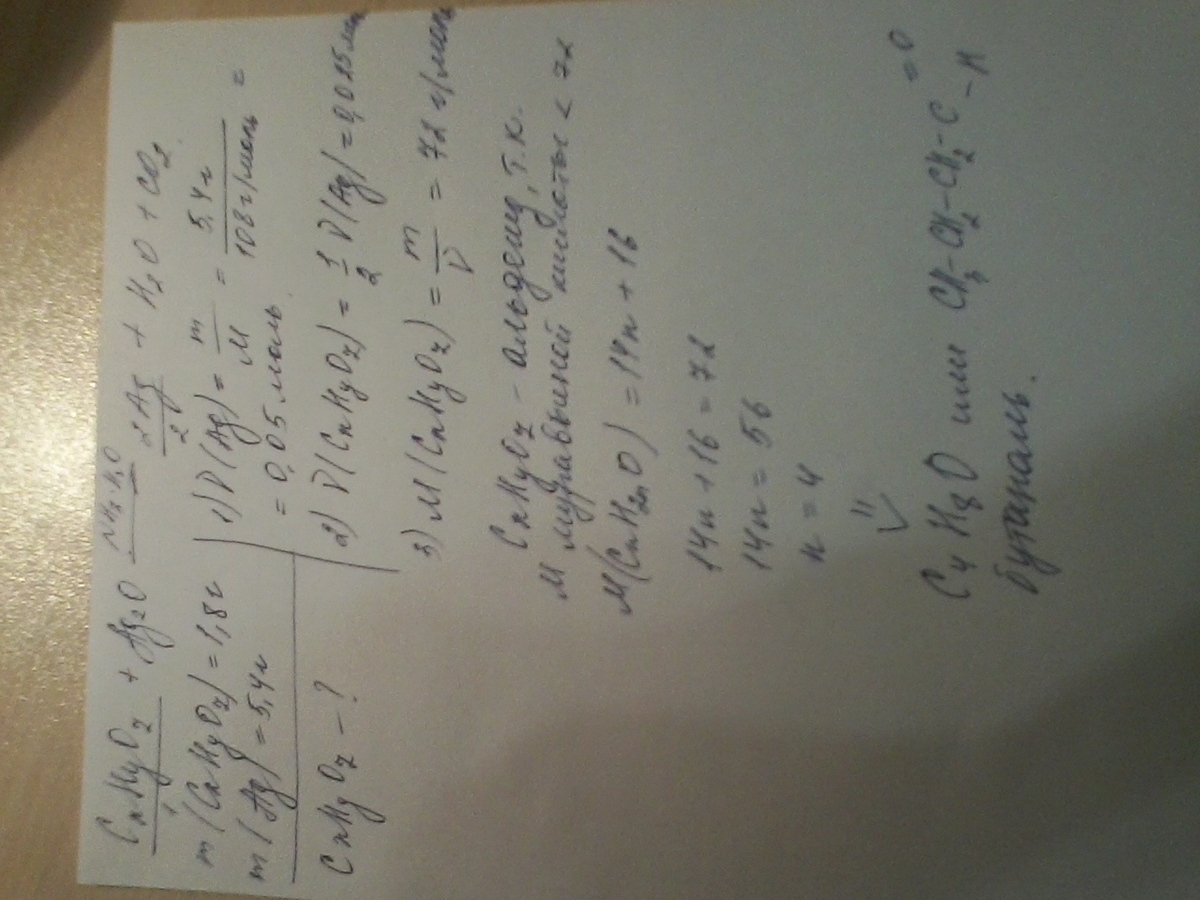 CxHyOz + Ag2O NH3·H2O 2Ag + H2O + CO2
1 2
m(CxHyOz) = 1,8г
m(Ag) = 5,4г
CxHyOz - ?
1) ν(Ag) = m/M = 5,4г/108г/моль =
= 0,05 моль
2) ν(CxHyOz) = 1/2 ν(Ag) = 0,025 моль
3) M(CxHyOz) = m/ν = 72 г/моль
CxHyOz - альдегид, т.к.
M муравьиной кислоты < 72
M(CnH2nO) = 14n + 16
14n + 16 = 72
14n = 56
n = 4
⇓
C4H8O или CH3-CH2-CH2-C =O -H
бутаналь.